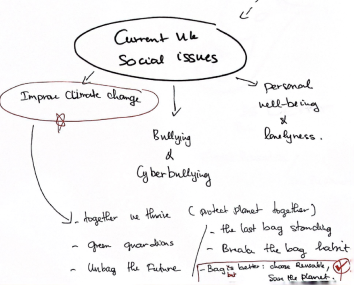 Current Uk
Social issues
Improve Climate change
Bullying
&
Cyberbullying
personal
well-being
&
lonelyness.
- together we thrive (protect planet together)
- Green guardians
- Unbag the Future
- the last bag standing
- Break the bag habit
- Bag is better: choose Reusable,
Save the planet.